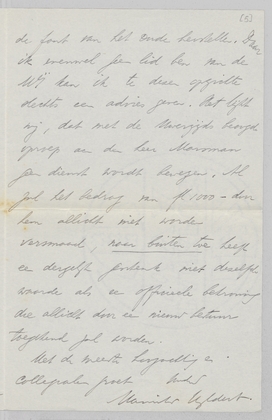 (3)
de fout van het oude herstellen. Daar
ik evenwel geen lid ben van de
Mij kan ik te dezen opzichte
slechts een advies geven. Het lijkt
mij, dat met de
oproep aan den heer
geen dienst wordt bewezen. Al
zal het bedrag van fl 1000 - door
hem allicht niet worde
versmaad, naar buiten toe heeft
een dergelijk geschenk niet dezelfde
waarde als een officieele bekroning
die allicht door een nieuw bestuur
toegekend zal worden.
Met de meeste hoogachting en
collegialen groet